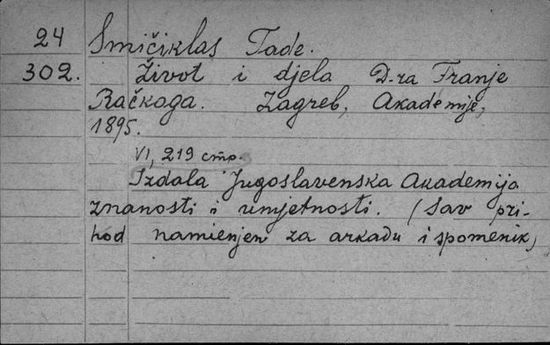 24 Smičiklas Tade.
302. Život i djela D-ra Franje
Račkoga. Zagreb, Akademije,
1895.
VI, 219 стр.
Izdala Jugoslavenska Akademija
znanosti i umjetnosti. (Sav pri-
hod namienjen za arkadu i spomenik)